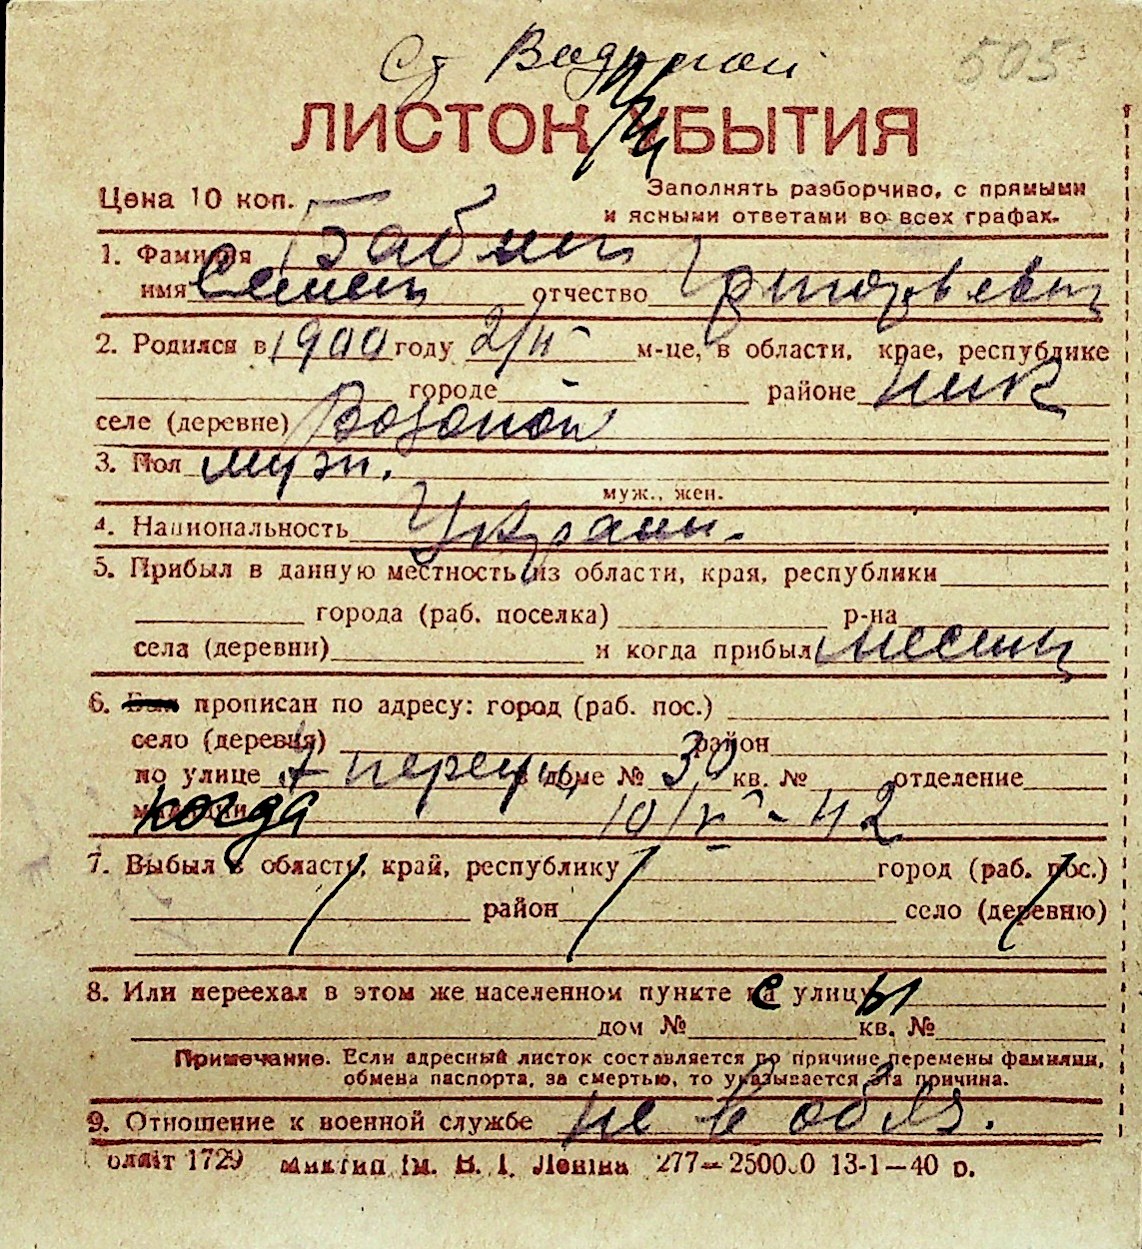 Ст Водяной
505
ЛИСТОК УБЫТИЯ
Цена 10 коп.
Заполнять разборчиво, с прямыми
и ясными ответами во всех графах.
1. Фамилия Бабич
имя Семен отчество Григорьевич
2. Родился в 1900 году 2/II м-це, в области, крае, республике
городе - районе Ник
селе (деревне) Водяной
3. Пол муж.
муж., жен.
4. Национальность Украин.
5. Прибыл в данную местность из области, края, республики
города (раб. поселка) р-на
села (деревни) и когда прибыл
6. Был прописан по адресу: город (раб. пос.)
село (деревня) район
по улице 7 в доме № 30 кв. № отделение
милиции когда 10/V - 42
7. Выбыл в область, край, республику город (раб. пос.)
район село (деревню)
8. Или переехал в этом же населенном пункте с улицы
дом № кв. №
Примечание. Если адресный листок составляется по причине перемены фамилии,
обмена паспорта, за смертью, то указывается эта причина.
9. Отношение к военной службе не в обяз.
Облліт 1729 Миктип ім. В. І. Леніна 277—2500.0 13-1—40 р.